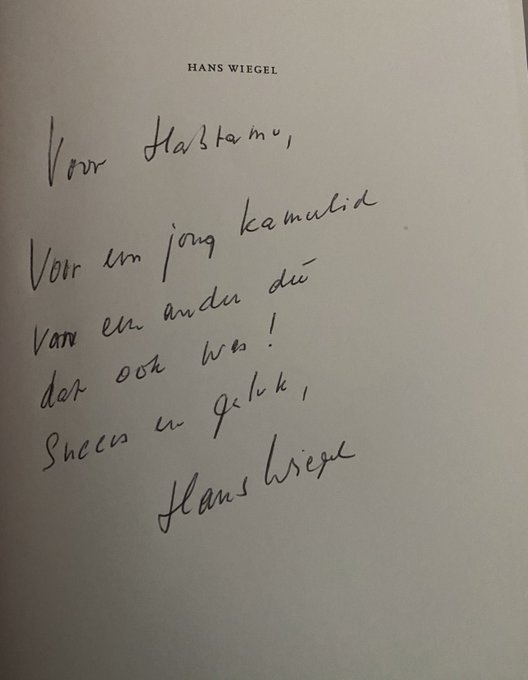 HANS WIEGEL
Voor Habtamu,
Voor een jong kamerlid
van een ander die
dat ook was!
Succes en geluk,
Hans Wiegel